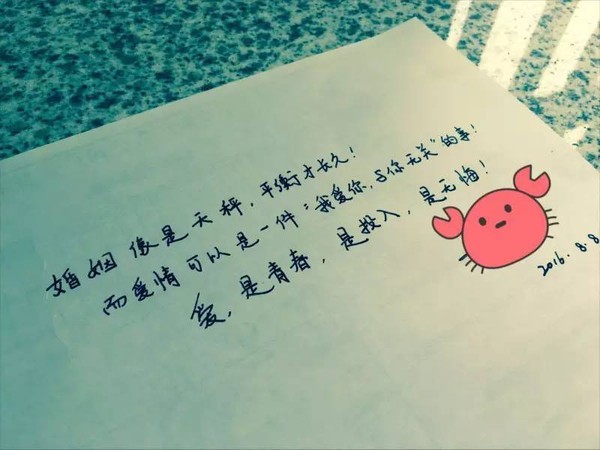 婚姻像是天秤，平衡才长久！
而爱情可以是一件："我爱你，与你无关"的事！
爱，是青春，是投入，是无悔！
2016.8.8